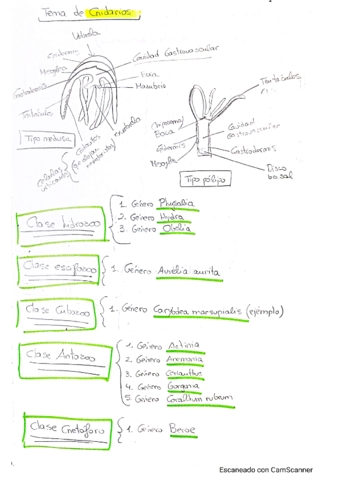 Tema de Cnidarios
Umbrella
Epidermis
Cavidad Gastrovascular
Mesoglea
Gastrodermis
Manubrio
Tentáculos
Tentáculos
Hipostoma/
Boca
Cavidad
gastrovascular
Epidermis
Gastrodermis
Mesoglea
Tipo medusa
Disco
basal
Tipo pólipo
Clase hidrozoo
1. Género Physalia
2. Género Hydra
3. Género Obelia
Clase escifozoo
1. Género Aurelia aurita
Clase Cubozoo
1. Género Carybdea marsupialis (ejemplo)
Clase Antozoo
1. Género Actinia
2. Género Anemonia
3. Género Cerianthus
4. Género Gorgonia
5. Género Corallium rubrum
Clase Ctenóforo
1. Género Beroe
Escaneado con CamScanner